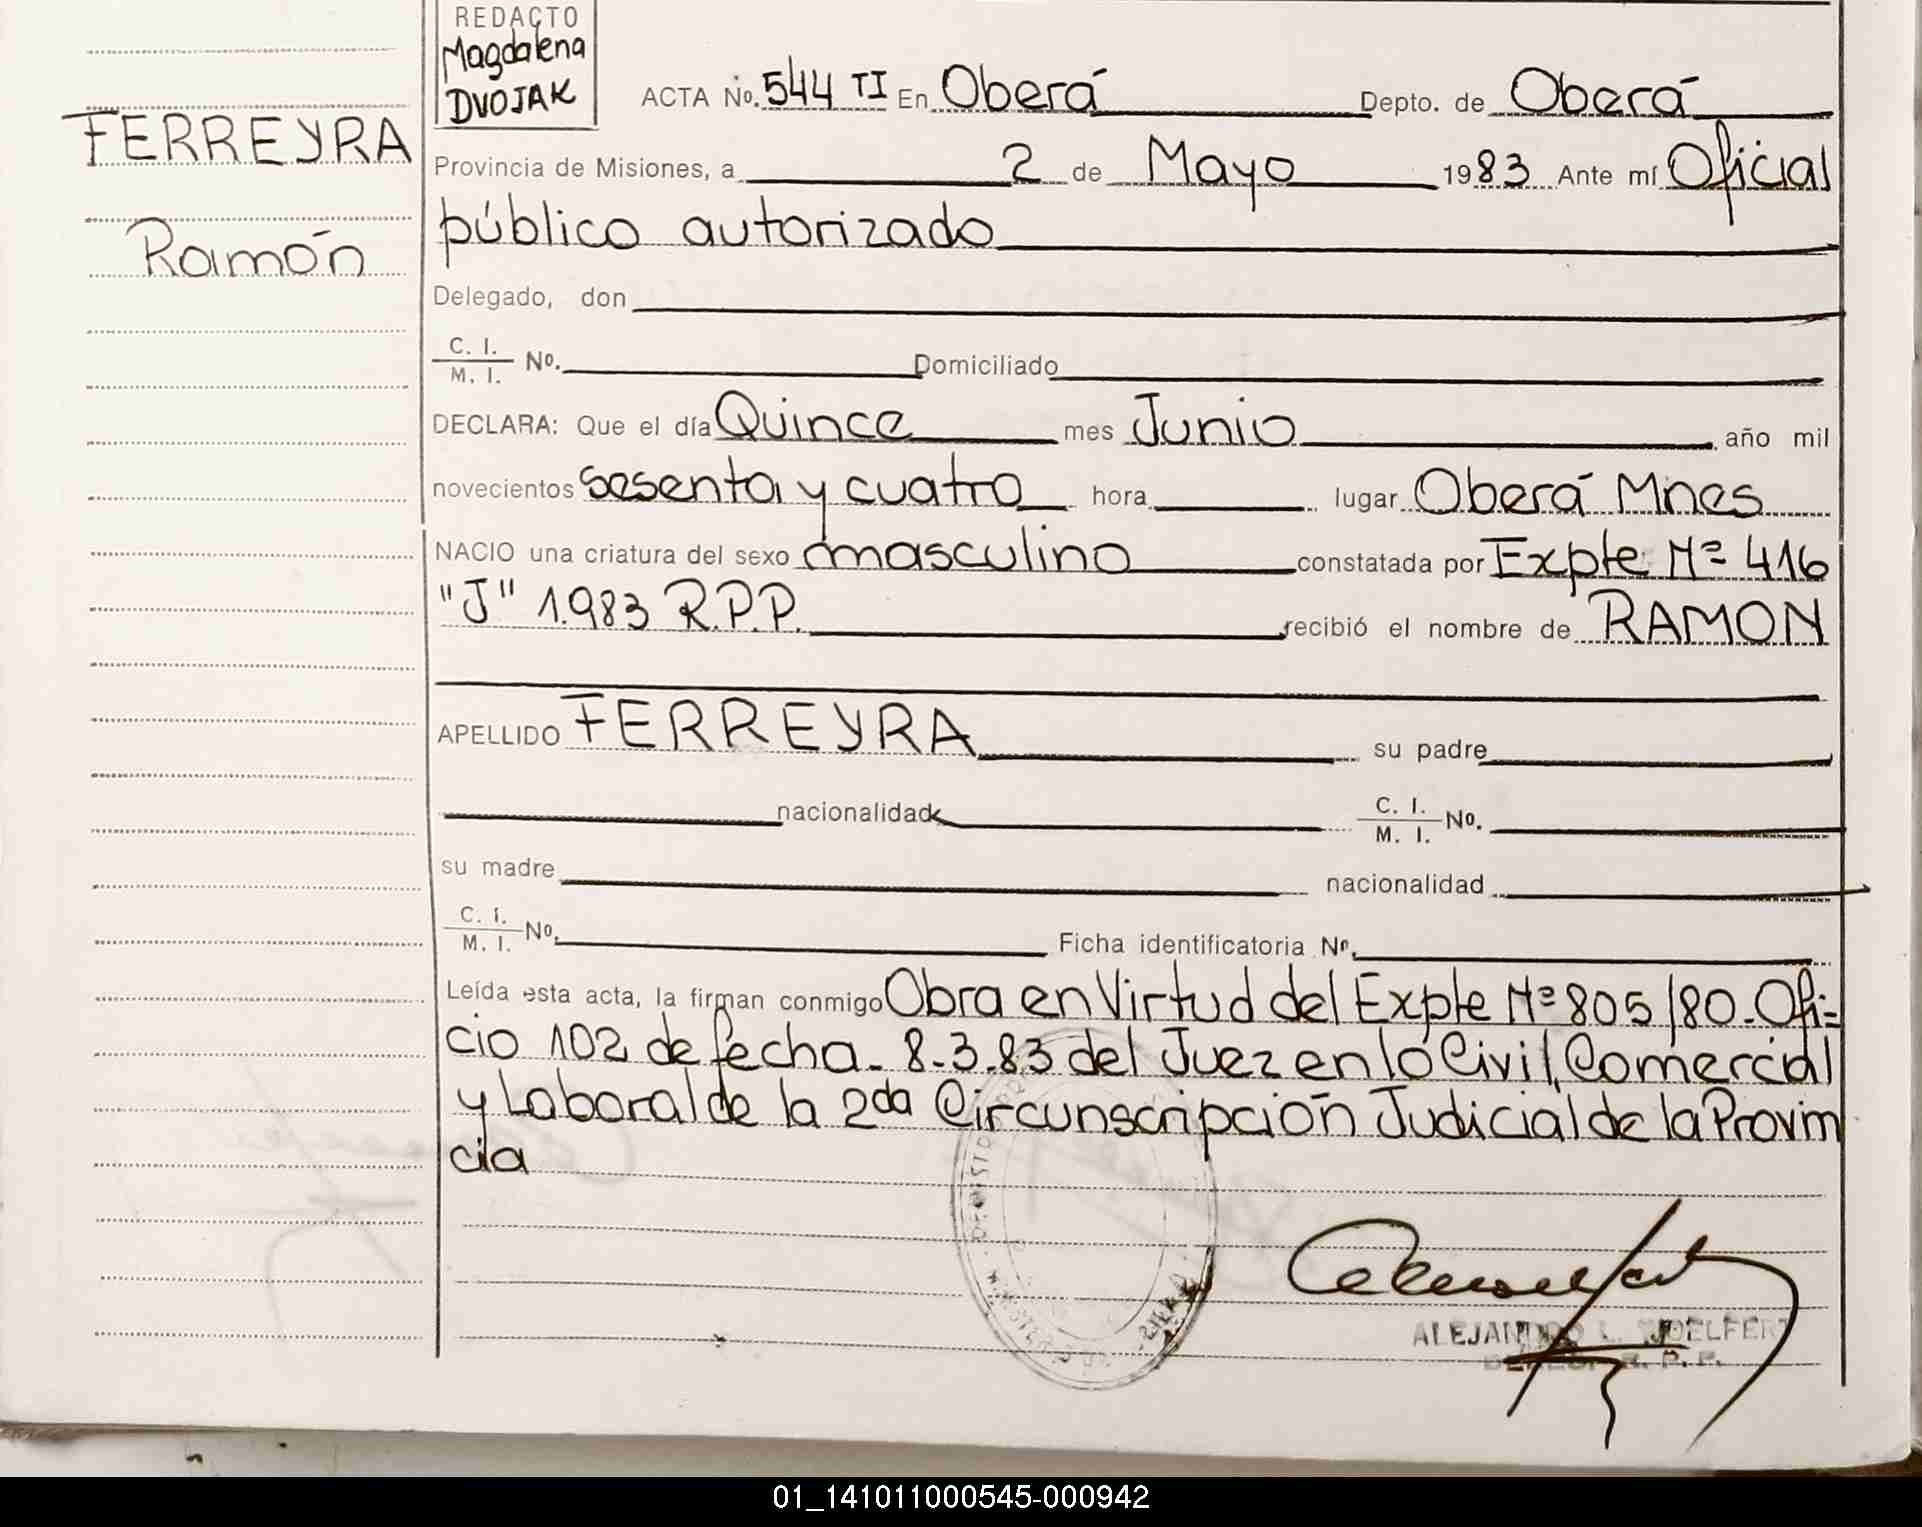 REDACTO
Magdalena
DVOJAK
ACTA No. 544 TI En Oberá Depto. de Oberá
FERREYRA
Provincia de Misiones, a 2 de Mayo 1983 Ante mí Oficial
Ramón
público autorizado
Delegado, don
C. I.
M. I. No. Domiciliado
DECLARA: Que el día Quince mes Junio año mil
novecientos sesenta y cuatro hora lugar Oberá Mnes
NACIO una criatura del sexo masculino constatada por Expte Nº 416
"J" 1.983 R.P.P. recibió el nombre de RAMON
APELLIDO FERREYRA su padre
nacionalidad C. I.
M. I. No.
su madre nacionalidad
C. I.
M. I. No. Ficha identificatoria No.
Leída esta acta, la firman conmigo Obra en Virtud del Expte Nº 805/80. Ofi=
cio 102 de fecha. 8.3.83 del Juez en lo Civil, Comercial
y Laboral de la 2da Circunscripción Judicial de la Provin
cia
ALEJANDRO L. WOELFERT
R. P. P.
01_141011000545-000942